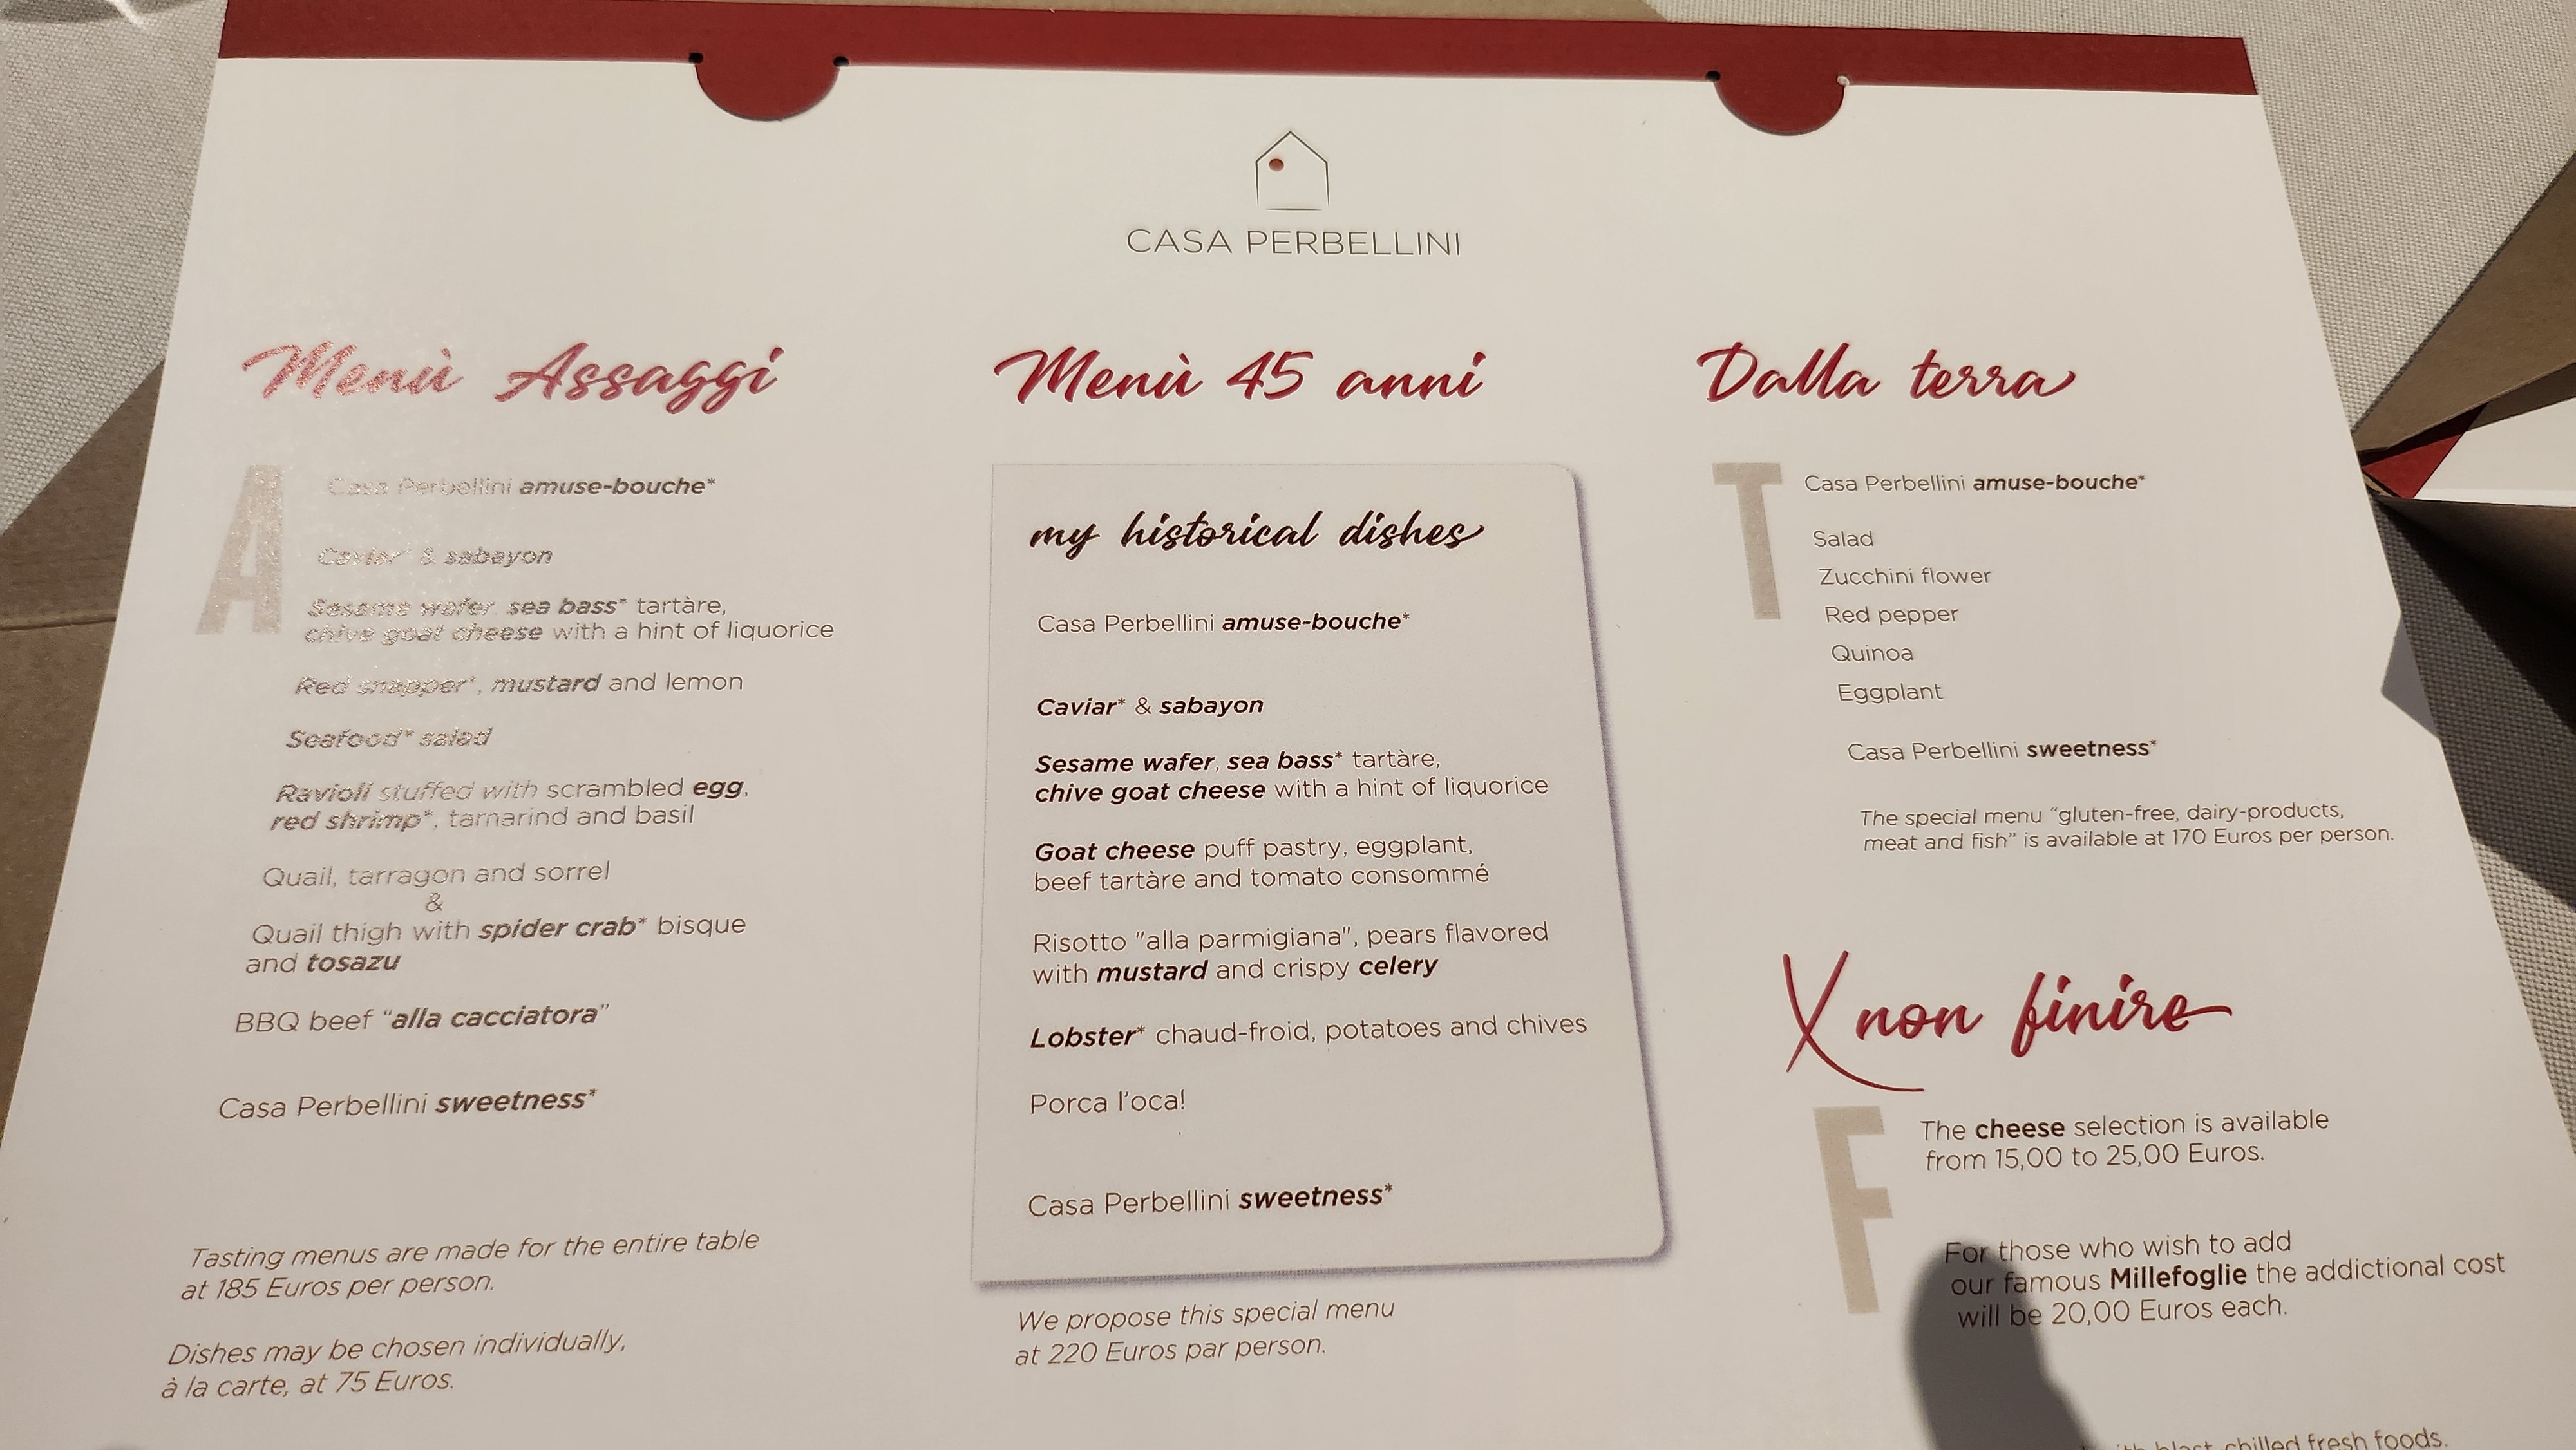 CASA PERBELLINI
Menù Assaggi
A
Casa Perbellini amuse-bouche*
Caviar* & sabayon
Sesame wafer, sea bass* tartàre,
chive goat cheese with a hint of liquorice
Red snapper*, mustard and lemon
Seafood* salad
Ravioli stuffed with scrambled egg,
red shrimp*, tamarind and basil
Quail, tarragon and sorrel
&
Quail thigh with spider crab* bisque
and tosazu
BBQ beef “alla cacciatora”
Casa Perbellini sweetness*
Tasting menus are made for the entire table
at 185 Euros per person.
Dishes may be chosen individually,
à la carte, at 75 Euros.
Menù 45 anni
my historical dishes
Casa Perbellini amuse-bouche*
Caviar* & sabayon
Sesame wafer, sea bass* tartàre,
chive goat cheese with a hint of liquorice
Goat cheese puff pastry, eggplant,
beef tartàre and tomato consommé
Risotto "alla parmigiana", pears flavored
with mustard and crispy celery
Lobster* chaud-froid, potatoes and chives
Porca l'oca!
Casa Perbellini sweetness*
We propose this special menu
at 220 Euros par person.
Dalla terra
T
Casa Perbellini amuse-bouche*
Salad
Zucchini flower
Red pepper
Quinoa
Eggplant
Casa Perbellini sweetness*
The special menu “gluten-free, dairy-products,
meat and fish” is available at 170 Euros per person.
X non finire
F
The cheese selection is available
from 15,00 to 25,00 Euros.
For those who wish to add
our famous Millefoglie the addictional cost
will be 20,00 Euros each.
chilled fresh foods.